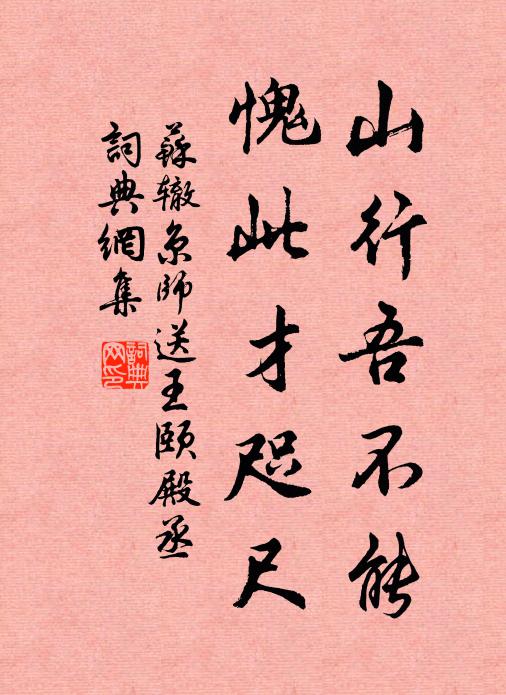 山行吾不能
愧此才咫尺
蘇轍京師送王頤殿丞
詞典網集
詞典網印